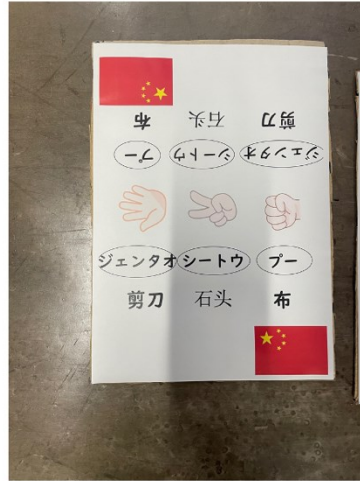 布 石头 剪刀
プー シートウ ジェンタオ
ジェンタオ シートウ プー
剪刀 石头 布